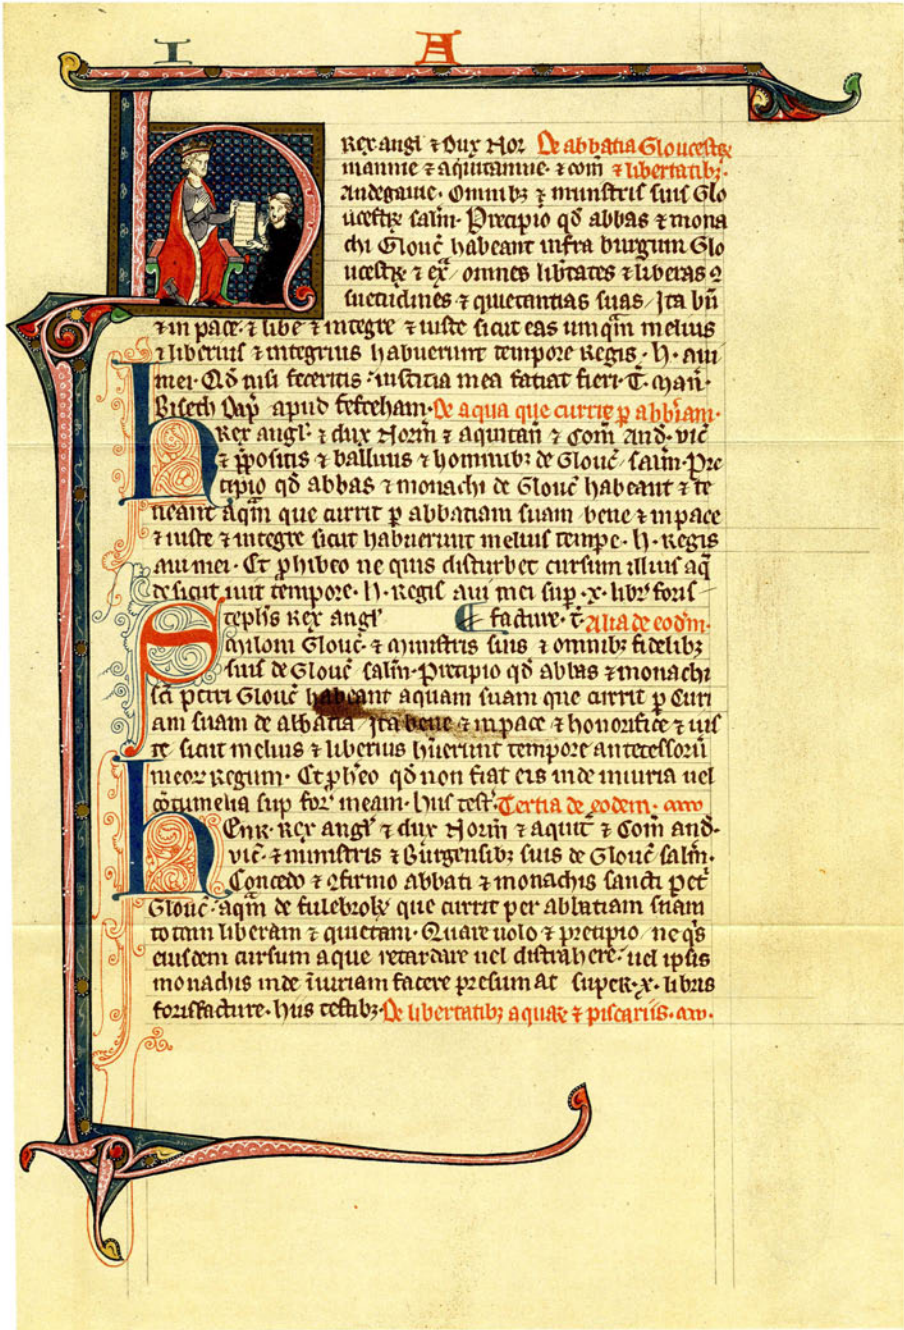 I A
H Rex angł ⁊ Dux Nor De abbatia Gloucestꝝ
mannie ⁊ aq̅itannie · ⁊ com̅ ⁊ libertatibꝫ·
Andegauie · Omnibꝫ ⁊ ministris suis Glo
ucestꝝ sal̅m · Precipio qd̅ abbas ⁊ mona
chi Glouc̅ habeant infra burgum Glo
ucestꝝ ⁊ ex̅ omnes lib̅tates ⁊ liberas ꝯ
suetudines ⁊ quietantias suas / Ita bn̅
⁊ in pace · ⁊ libe ⁊ integre ⁊ iuste sicut eas umq̅m melius
⁊ liberius ⁊ integrius habuerunt tempore Regis · H · aui
mei · Qd̅ nisi feceritis · iusticia mea faciat fieri · T̅ · Man̅ ·
Biseth Dap̅ apud fecheham · De aqua que currit ꝑ abb̅iam ·
H Rex angł · ⁊ dux Norm̅ ⁊ aquitan̅ ⁊ Com̅ And · vic̅
⁊ p̅positis ⁊ balliuis ⁊ hominibꝫ de Glouc̅ / sal̅m · Pre
cipio qd̅ abbas ⁊ monachi de Glouc̅ habeant ⁊ te
neant aq̅m que currit ꝑ abbatiam suam bene ⁊ in pace
⁊ iuste ⁊ integre sicut habuerunt melius tempe · h · Regis
aui mei · Et ꝓhibeo ne quis disturbet cursum illius aq̅
de sicut iuit tempore · H · Regis aui mei sup̅ · x · libr̅ foris
Steph̅s Rex angł ¶ facture · T̅ · Alia de eod̅m ·
Miloni Glouc̅ · ⁊ Ministris suis ⁊ omnibꝫ fidelibꝫ
suis de Glouc̅ sal̅m · Precipio qd̅ abbas ⁊ monachi
sc̅i petri Glouc̅ habeant aquam suam que currit ꝑ Curi
am suam de abbatia / Ita bene ⁊ in pace ⁊ honorifice ⁊ ius
te sicut melius ⁊ liberius hu̅erunt tempore antecessorū
meoꝝ Regum · Et ꝓh̅eo qd̅ non fiat eis inde iniuria uel
cōtumelia sup for̅ meam · hiis test̅ · Tertia de eodem ·
HEnr̅ · Rex angł ⁊ dux Norm̅ ⁊ aquit̅ ⁊ Com̅ and̅ ·
vic̅ · ⁊ ministris ⁊ Burgensibꝫ suis de Glouc̅ sal̅m ·
Concedo ⁊ ꝯfirmo abbati ⁊ monachis sancti pet̅
Glouc̅ · aq̅m de fulebrok que currit per abbatiam suam
totam liberam ⁊ quietam · Quare uolo ⁊ precipio / ne q̅s
eiusdem cursum aque retardare uel distrahere · uel ipsis
monachis inde īiuriam facere presumat super · x · libris
forisfacture · hiis testibꝫ · De libertatibꝫ aquaꝝ ⁊ piscariis ·